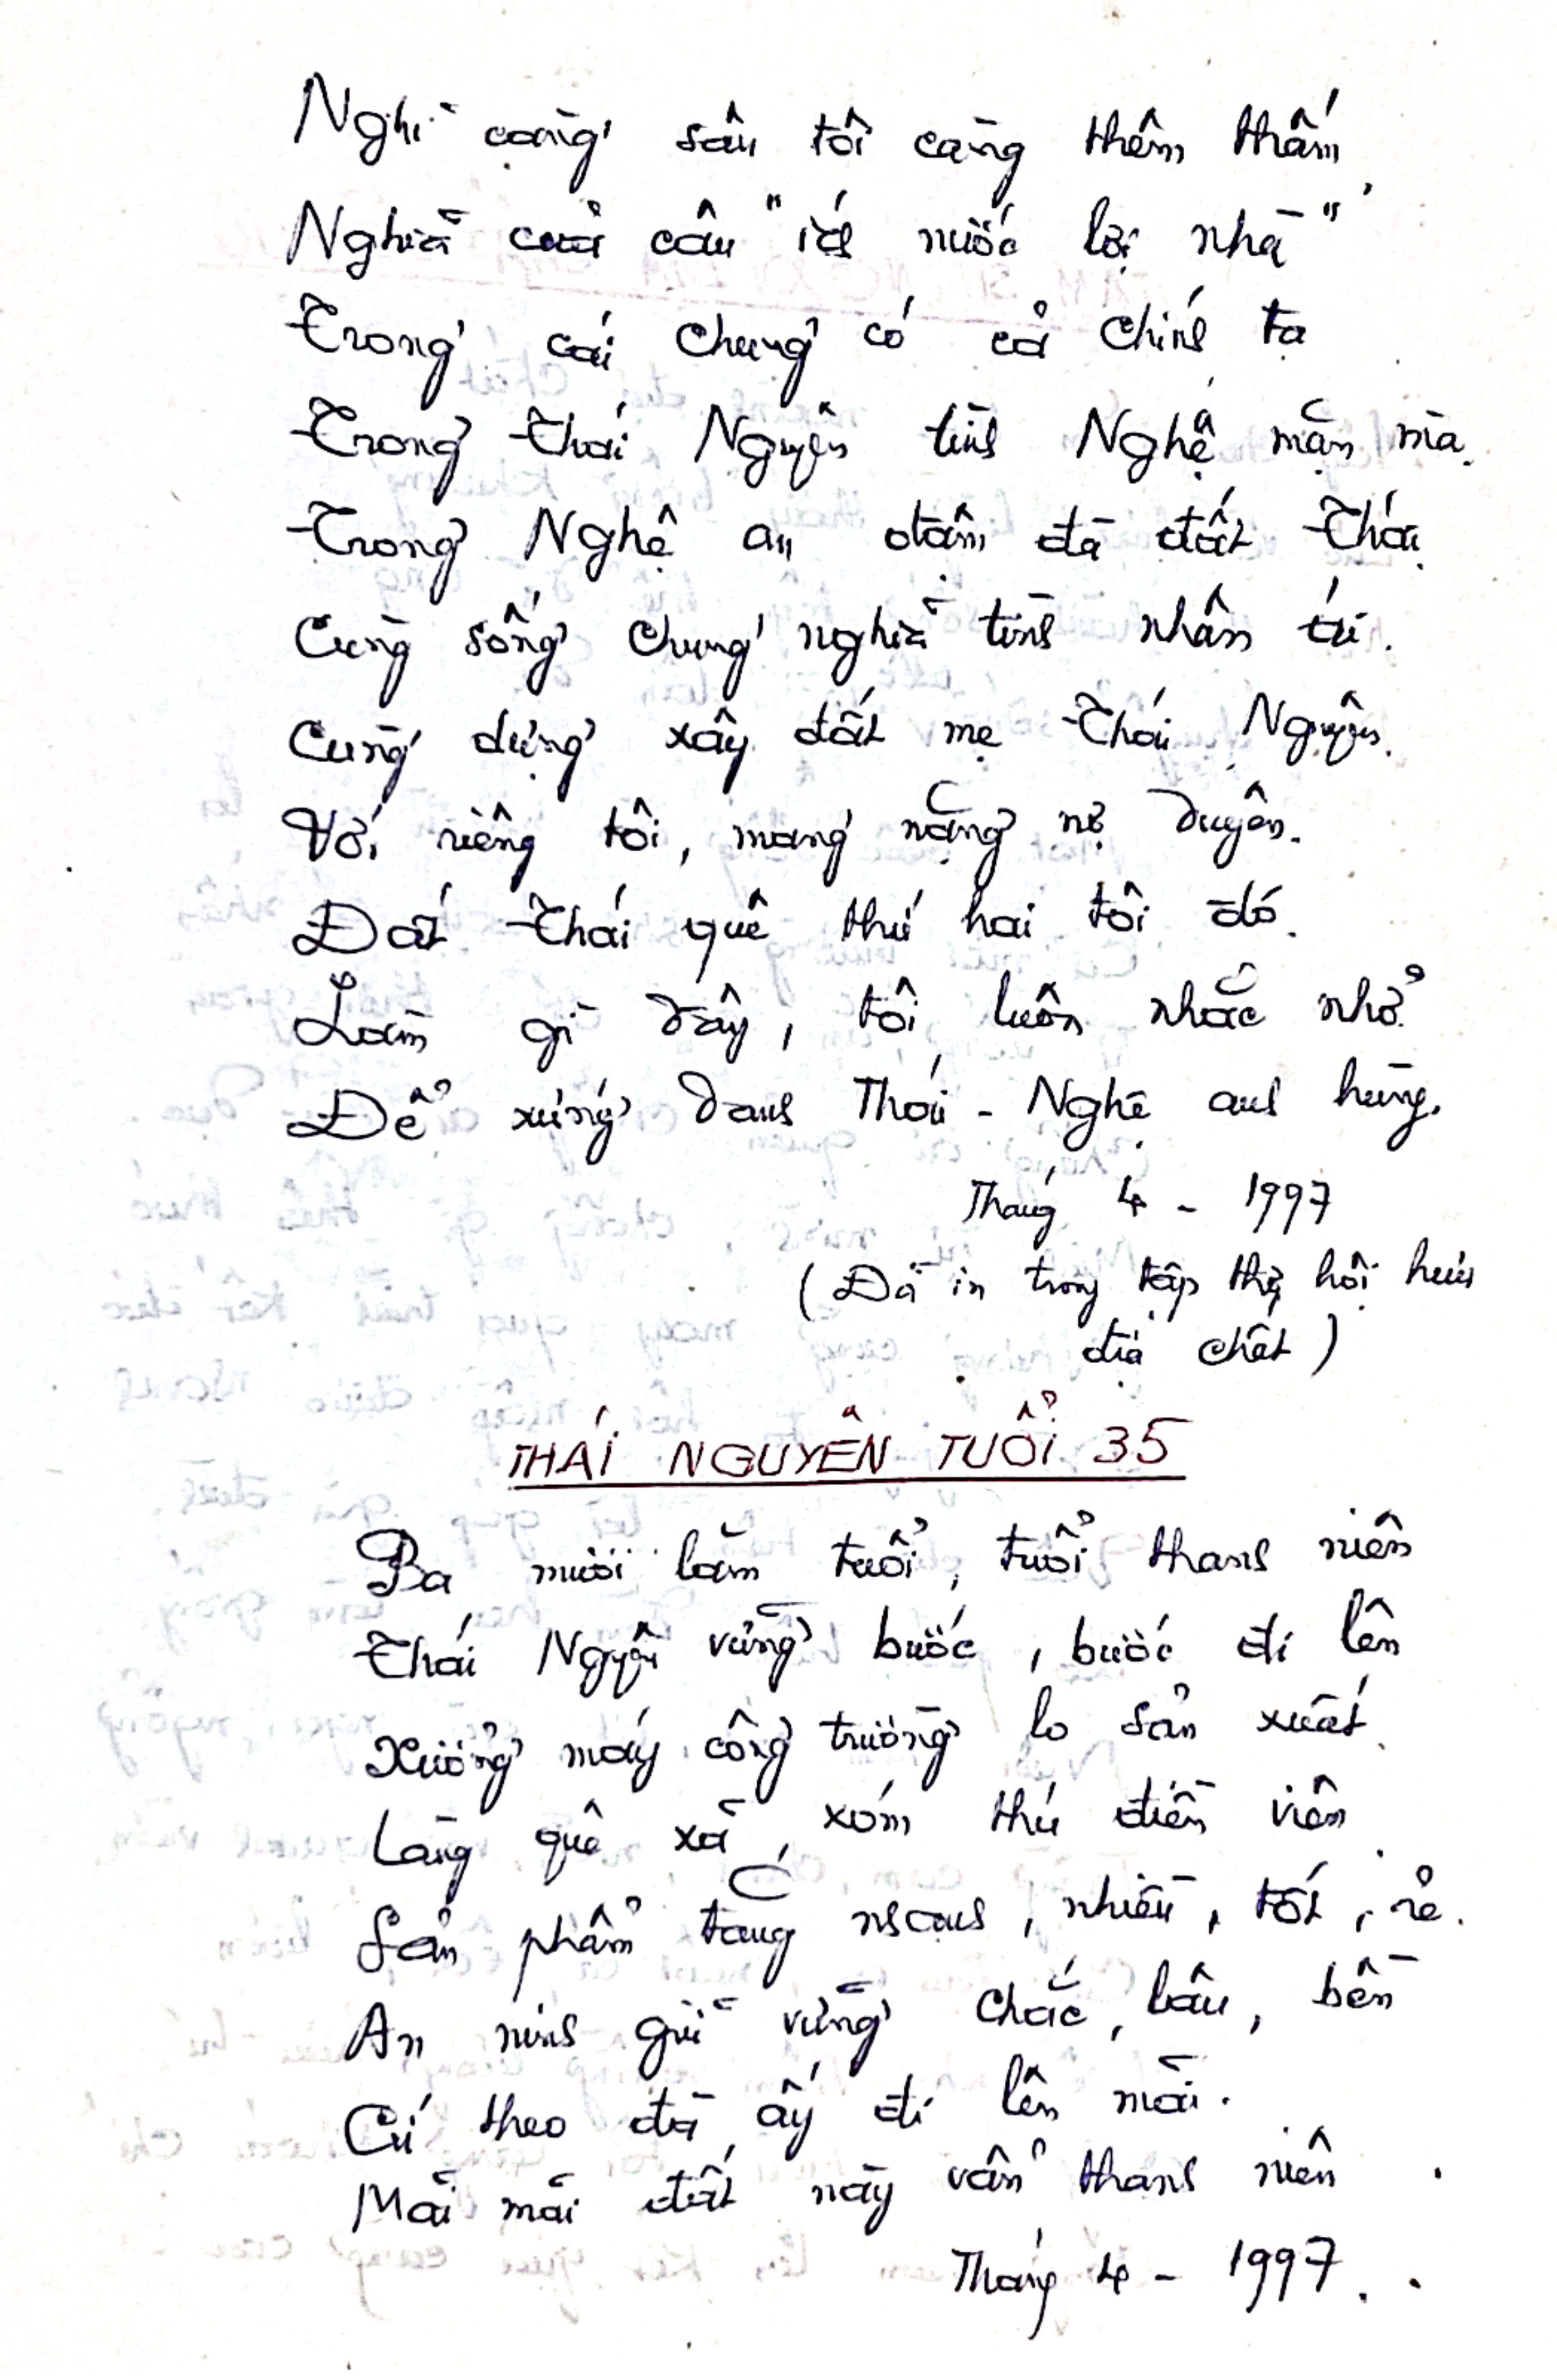 Nghĩ càng sâu tôi càng thêm thấm
Nghĩa của câu "ích nước lợi nhà"
Trong cái chung có cả chính ta
Trong Thái Nguyên tình Nghệ mặn mà.
Trong Nghệ an đậm đà đất Thái
Cùng sống chung nghĩa tình nhân ái.
Cùng dựng xây đất mẹ Thái Nguyên.
Với riêng tôi, mang nặng nợ duyên.
Đất Thái quê thứ hai tôi đó.
Làm gì đây, tôi luôn nhắc nhở
Để xứng danh Thái - Nghệ anh hùng.
Tháng 4 - 1997
(Đã in trong tập thơ hội hưu
địa chất)
THÁI NGUYÊN TUỔI 35
Ba mươi lăm tuổi, tuổi thanh niên
Thái Nguyên vững bước, bước đi lên
Xưởng máy công trường lo sản xuất.
Làng quê xã, xóm thú điền viên.
Sản phẩm tăng nhanh, nhiều, tốt, rẻ.
An ninh giữ vững chắc, lâu, bền
Cứ theo đà ấy đi lên mãi.
Mãi mãi đất này vẫn thanh niên.
Tháng 4 - 1997.